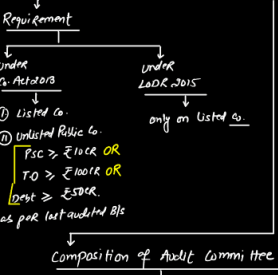 Requirement
under
Co. Act 2013
① Listed Co.
② Unlisted Public Co.
PSC ≥ ₹10CR OR
T.O ≥ ₹100CR OR
Debt ≥ ₹50CR.
as per last audited B/s
under
LODR 2015
only on Listed Co.
Composition of Audit Committee